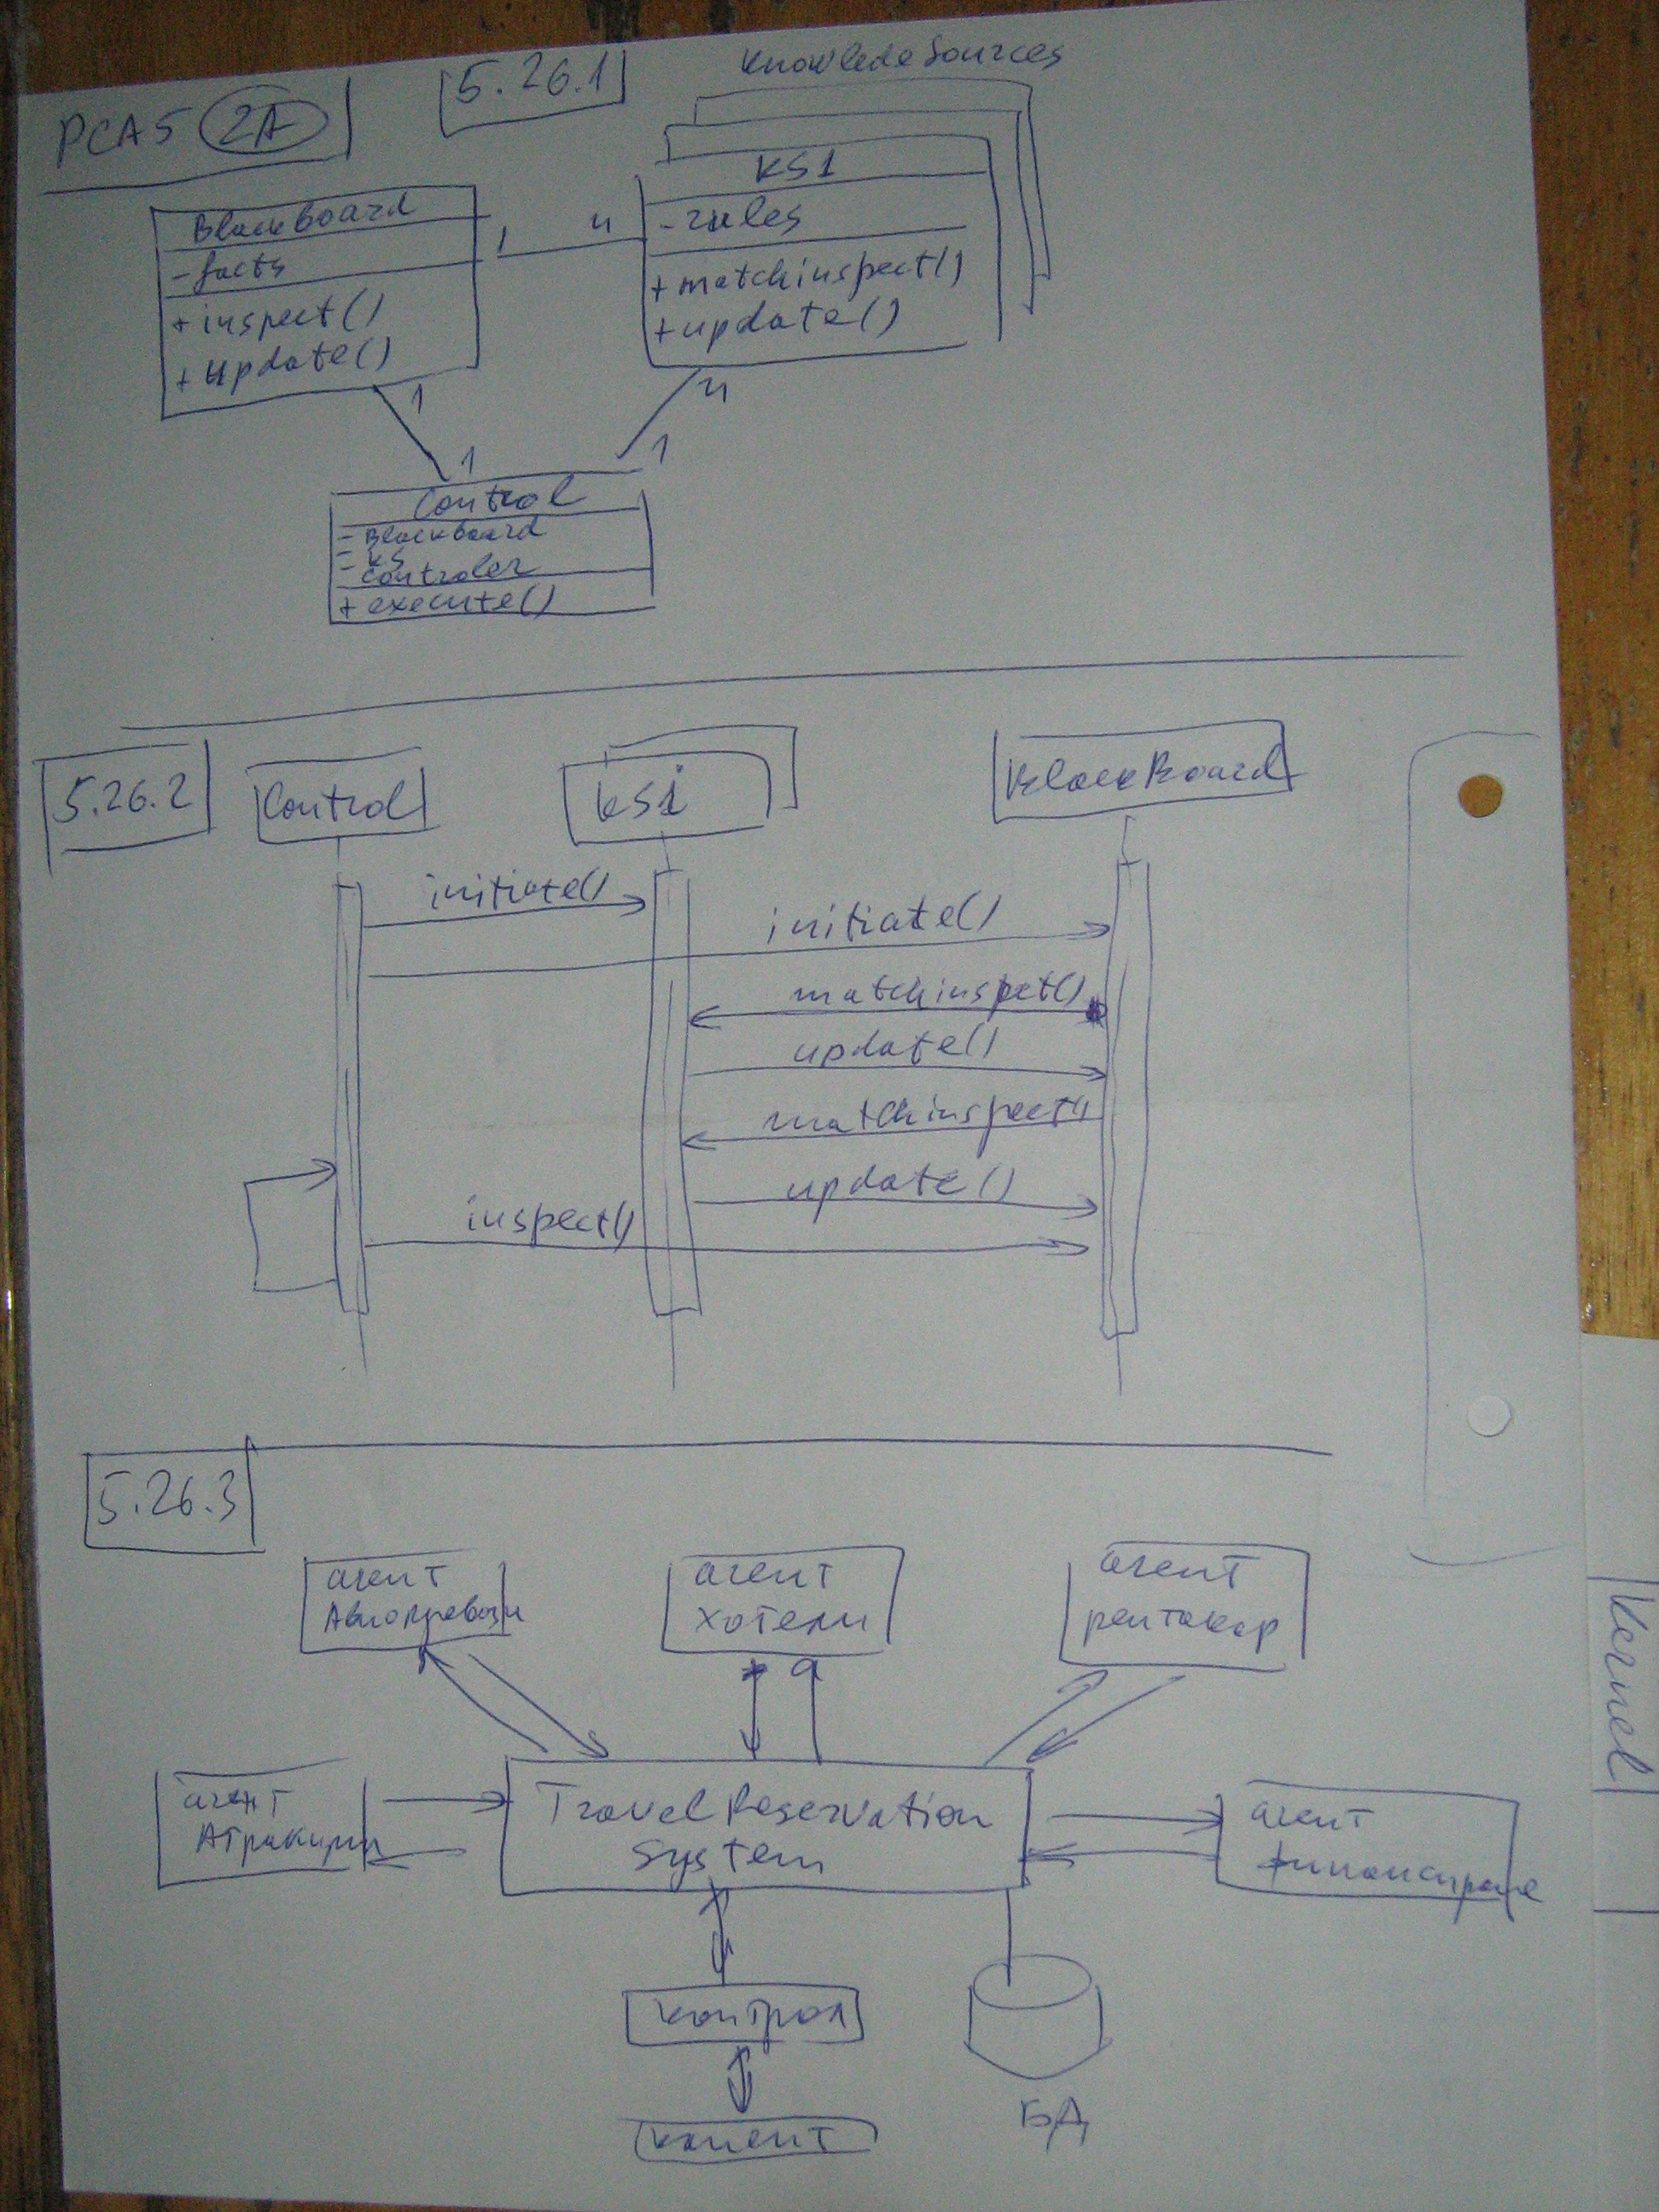 PCA5 2A
5.26.1
Knowlede Sources
BlackBoard
- facts
+ inspect()
+ update()
1
n
KS1
- rules
+ matchinspect()
+ update()
1
1
n
1
Control
- BlackBoard
- KS
- Controler
+ execute()
5.26.2
Control
KSi
BlackBoard
initiate()
initiate()
matchinspet()
update()
matchinspect()
update()
inspect()
5.26.3
агент
Авиопревози
агент
хотели
агент
рентакар
агент
Атракции
Travel Reservation
System
агент
финансиране
контрол
клиент
БД
Kernel